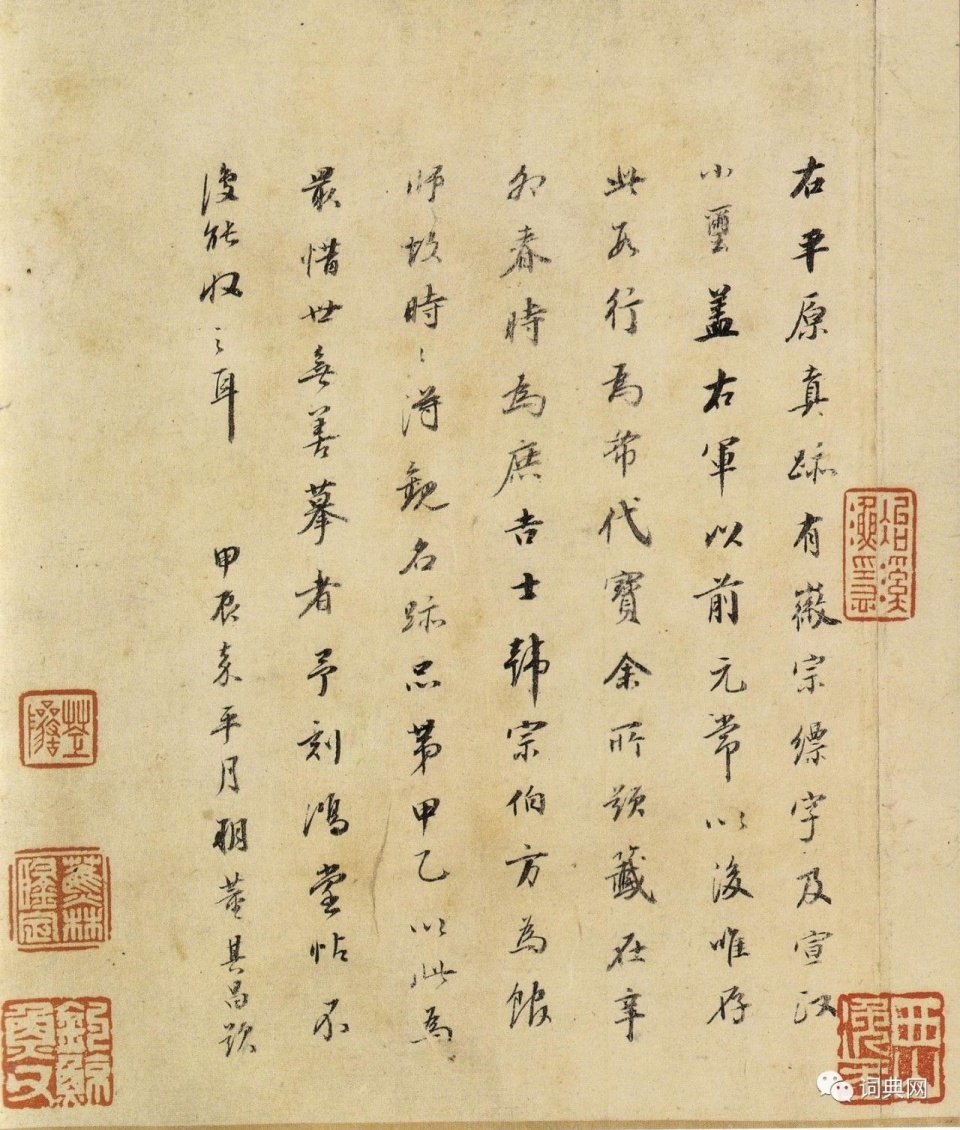 右平原真跡有徽宗縹字及宣政
小璽蓋右軍以前元常以後唯存
此數行為希代寶余所題籤在辛
卯春時為庶吉士韓宗伯方為館
師故時〻得觀名跡品第甲乙以此為
最惜世無善摹者予刻鴻堂帖不
復能收之耳 甲辰嘉平月朔董其昌題
词典网